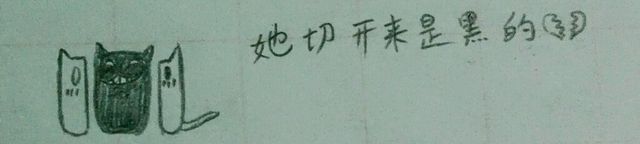 她切开来是黑的